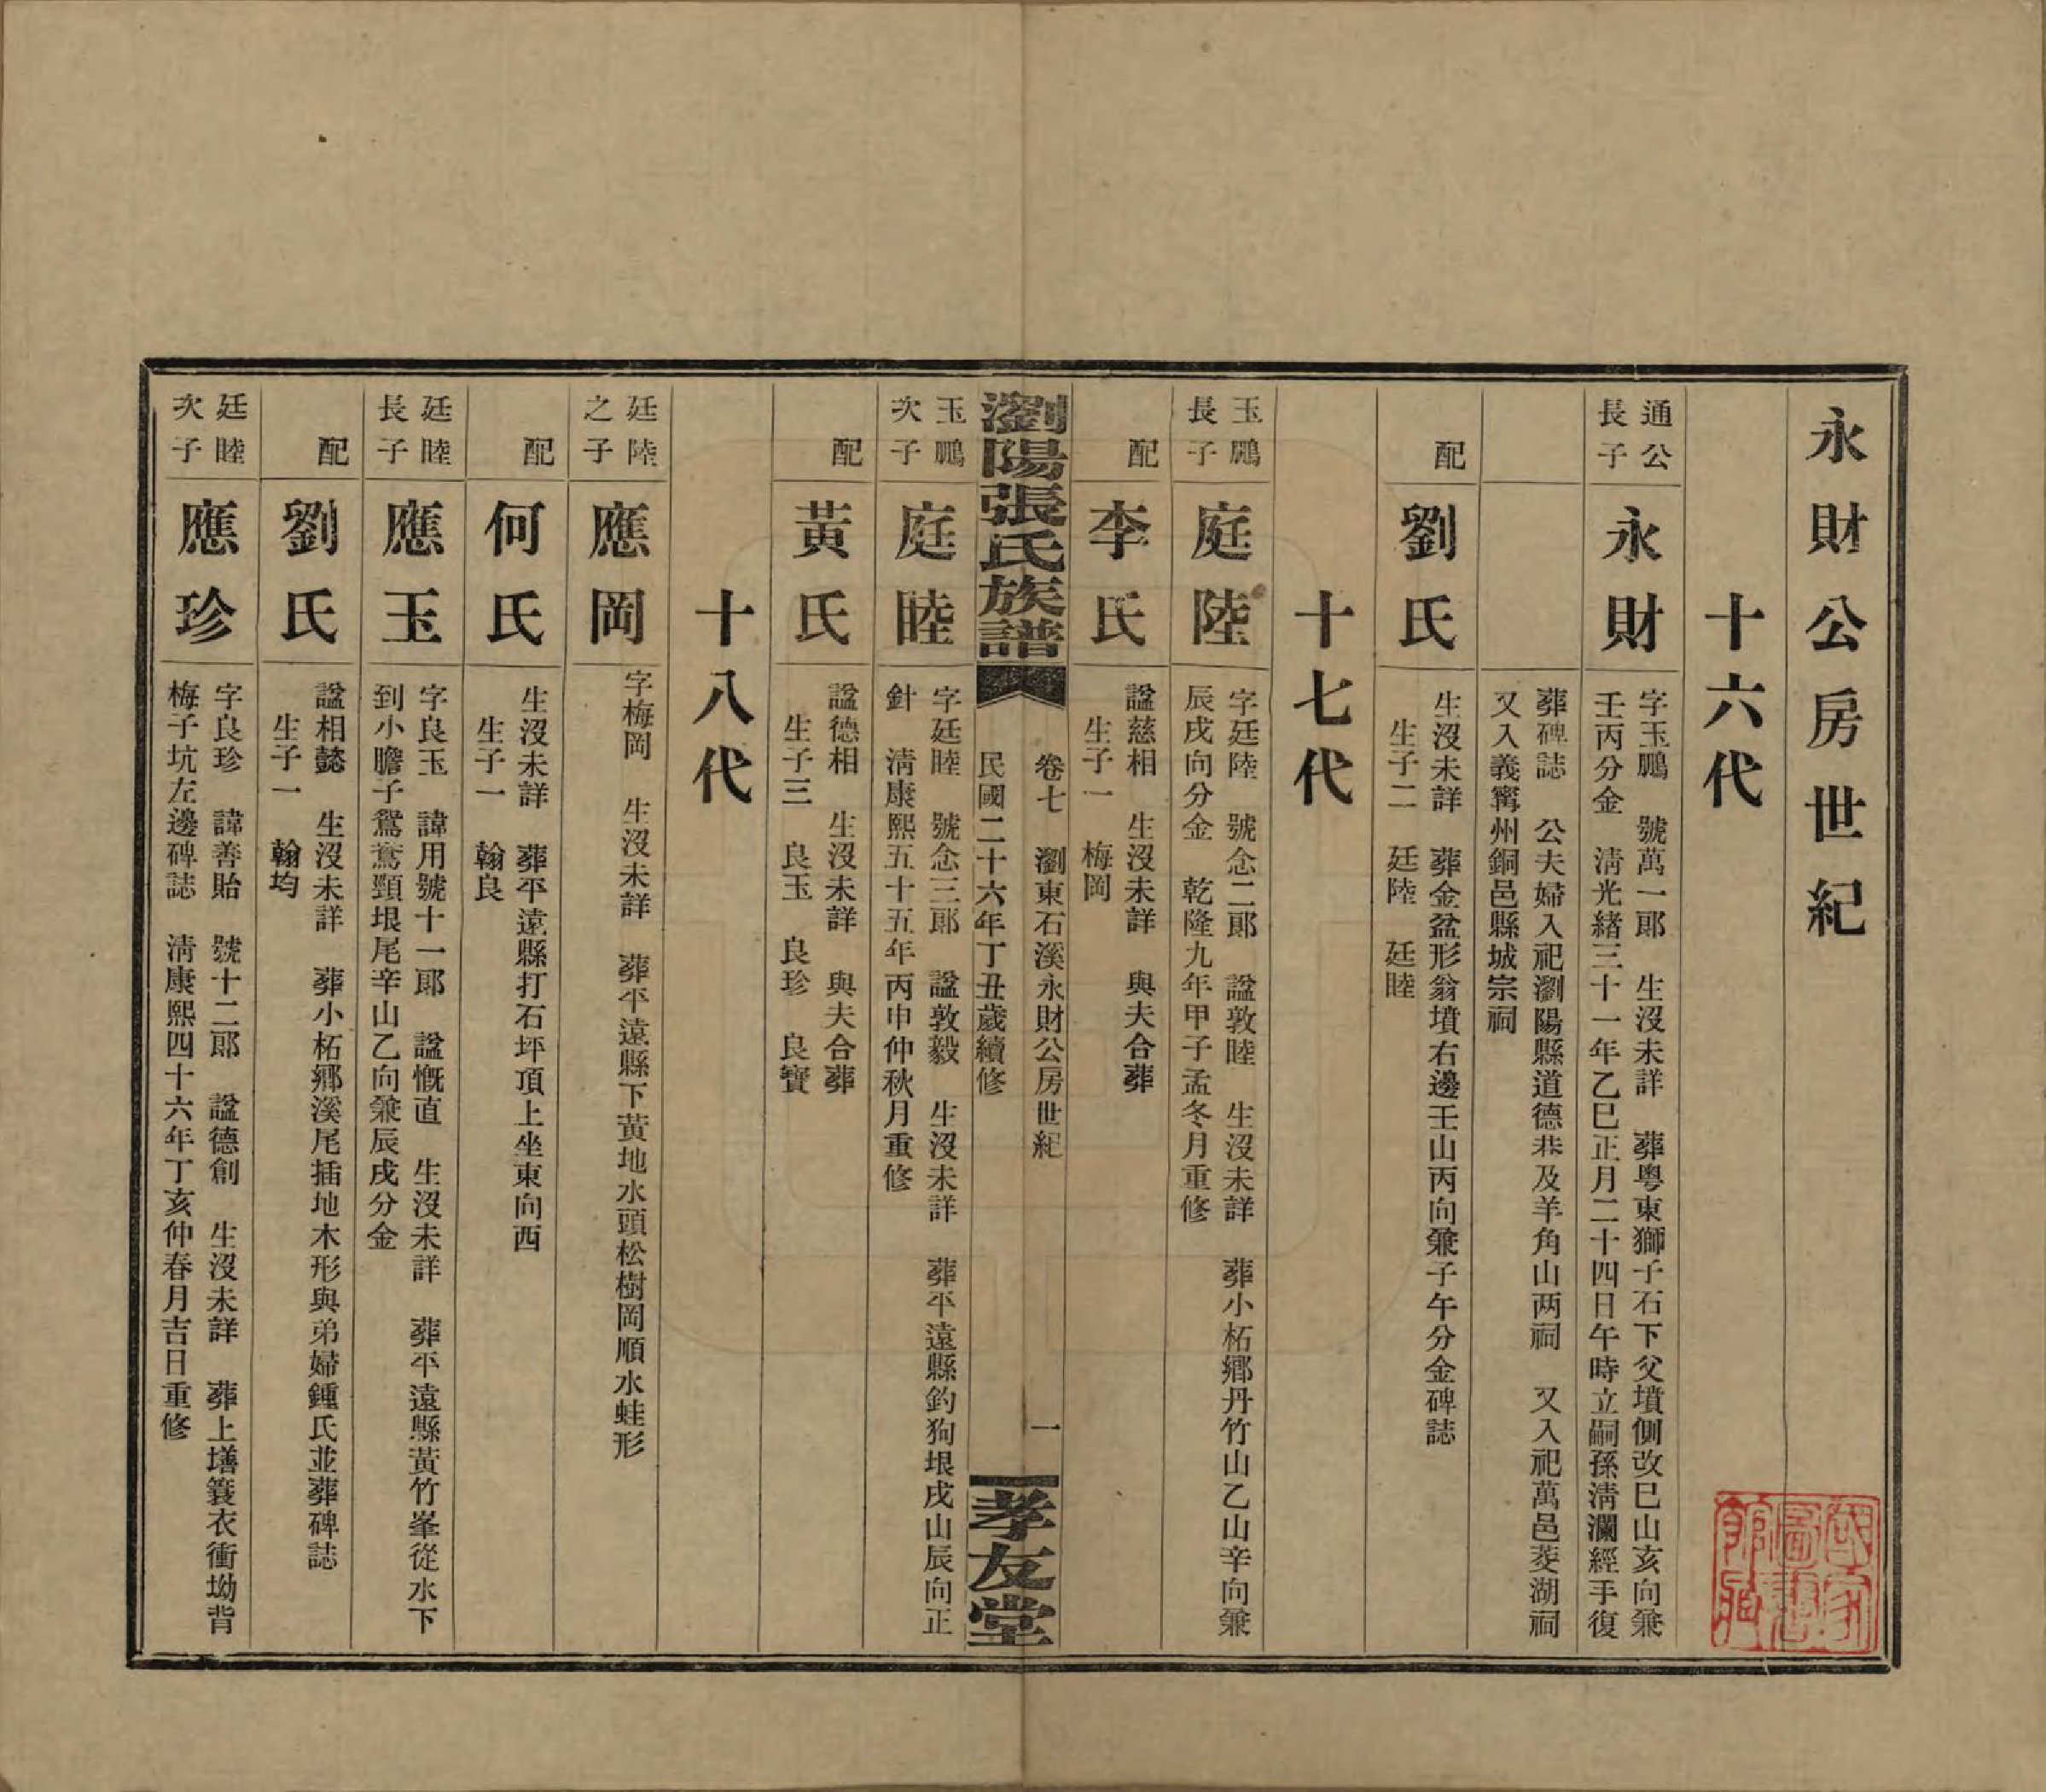 永財公房世紀
十六代
通公長子
永財
字玉鵬　號萬一郎　生沒未詳　葬粵東獅子石下父墳側改巳山亥向兼
壬丙分金　淸光緒三十一年乙巳正月二十四日午時立嗣孫淸瀾經手復
葬碑誌　公夫婦入祀瀏陽縣道德巷及羊角山两祠　又入祀萬邑菱湖祠
又入義寗州銅邑縣城宗祠
配
劉氏
生沒未詳　葬金盆形翁墳右邊壬山丙向兼子午分金碑誌
生子二　廷陸　廷睦
十七代
玉鵬長子
庭陸
字廷陸　號念二郎　諡敦睦　生沒未詳　葬小柘鄉丹竹山乙山辛向兼
辰戌向分金　乾隆九年甲子孟冬月重修
配
李氏
諡慈相　生沒未詳　與夫合葬
生子一　梅岡
瀏陽張氏族譜
卷七　瀏東石溪永財公房世紀　一
民國二十六年丁丑歲續修
孝友堂
玉鵬次子
庭睦
字廷睦　號念三郎　諡敦毅　生沒未詳　葬平遠縣釣狗垠戌山辰向正
針　淸康熙五十五年丙申仲秋月重修
配
黃氏
諡德相　生沒未詳　與夫合葬
生子三　良玉　良珍　良寶
十八代
廷陸之子
應岡
字梅岡　生沒未詳　葬平遠縣下黃地水頭松樹岡順水蛙形
配
何氏
生沒未詳　葬平遠縣打石坪頂上坐東向西
生子一　翰良
廷睦長子
應玉
字良玉　諱用號十一郎　諡慨直　生沒未詳　葬平遠縣黃竹峯從水下
到小膽子鴛鴦頸垠尾辛山乙向兼辰戌分金
配
劉氏
諡相懿　生沒未詳　葬小柘鄉溪尾插地木形與弟婦鍾氏並葬碑誌
生子一　翰均
廷睦次子
應珍
字良珍　諱善貽　號十二郎　諡德創　生沒未詳　葬上墡簑衣衝坳背
梅子坑左邊碑誌　淸康熙四十六年丁亥仲春月吉日重修